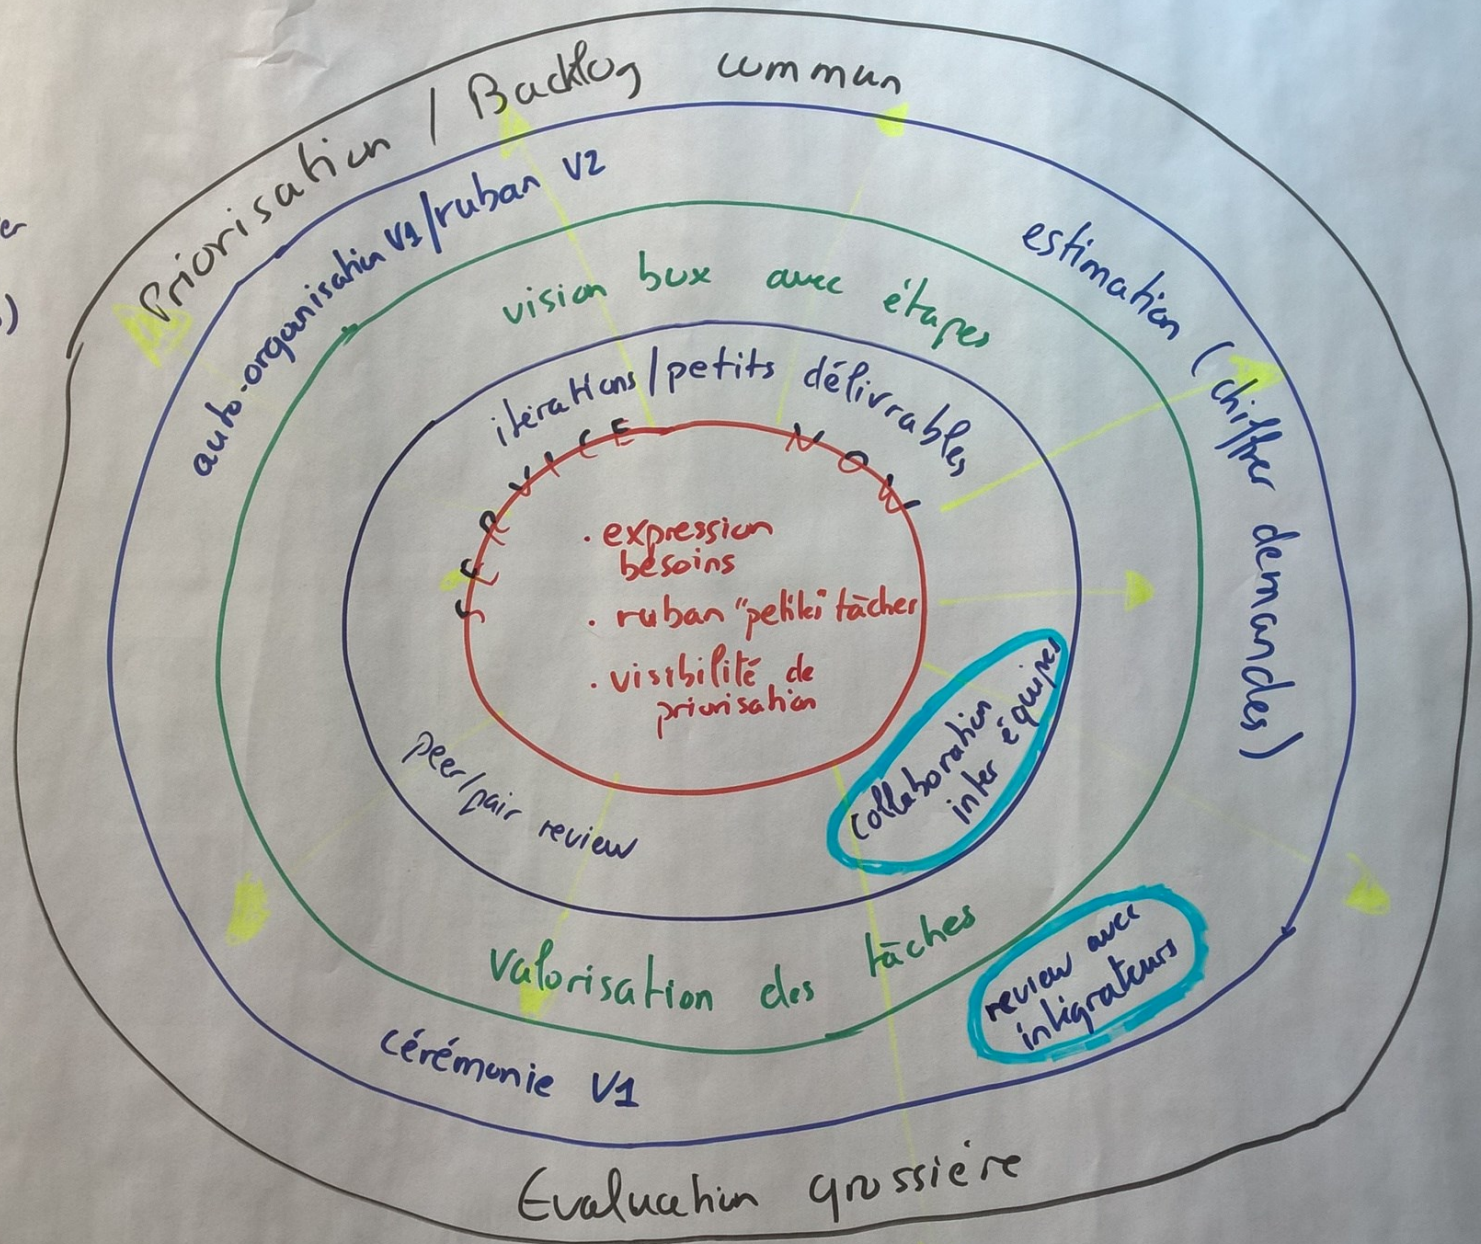 Priorisation / Backlog commun
auto-organisation V1/ruban V2
estimation (chiffrer demandes)
vision box avec étapes
itérations/petits délivrables
SERVICE NOW
. expression
besoins
. ruban "petites" tâches
. visibilité de
priorisation
collaboration
inter équipes
peer/pair review
valorisation des tâches
review avec
intégrateurs
cérémonie V1
Evaluation grossière